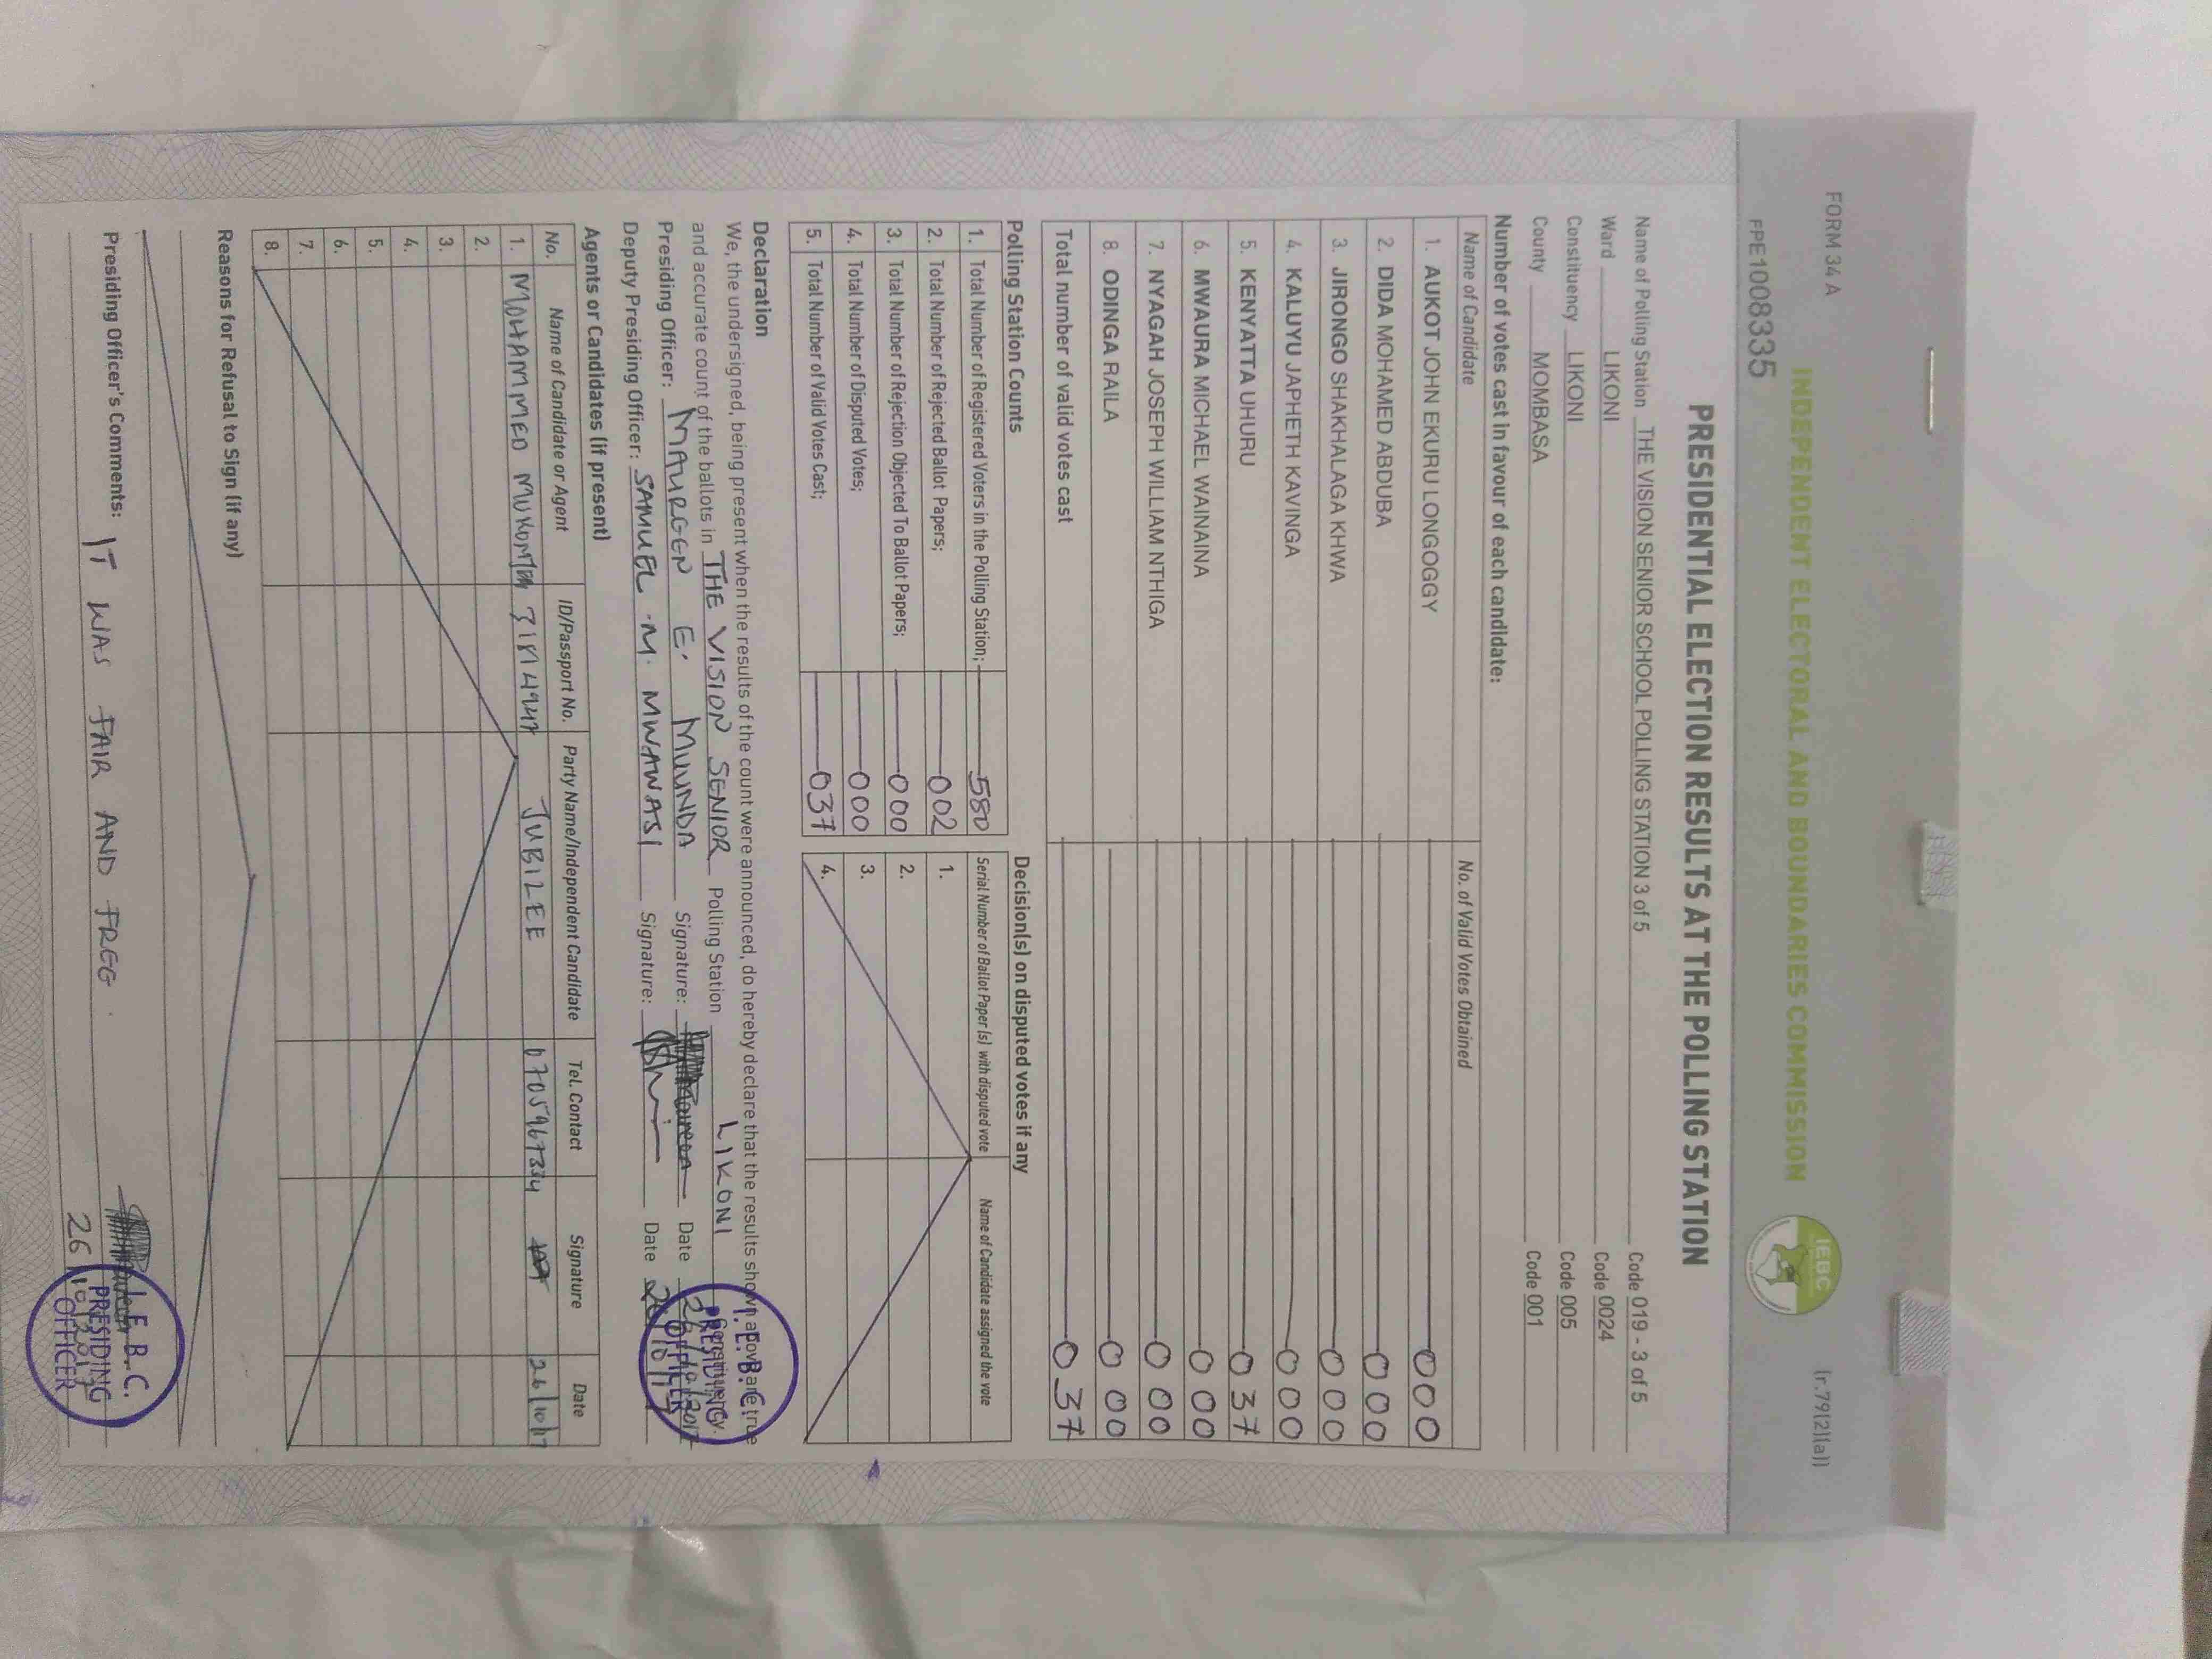 FORM 34 A
(r.79(2)(a))
INDEPENDENT ELECTORAL AND BOUNDARIES COMMISSION
IEBC
FPE1008335
PRESIDENTIAL ELECTION RESULTS AT THE POLLING STATION
Name of Polling Station THE VISION SENIOR SCHOOL POLLING STATION 3 of 5 Code 019 - 3 of 5
Ward LIKONI Code 0024
Constituency LIKONI Code 005
County MOMBASA Code 001
Number of votes cast in favour of each candidate:
Name of Candidate No. of Valid Votes Obtained
1. AUKOT JOHN EKURU LONGOGGY 000
2. DIDA MOHAMED ABDUBA 000
3. JIRONGO SHAKHALAGA KHWA 000
4. KALUYU JAPHETH KAVINGA 000
5. KENYATTA UHURU 037
6. MWAURA MICHAEL WAINAINA 000
7. NYAGAH JOSEPH WILLIAM NTHIGA 000
8. ODINGA RAILA 000
Total number of valid votes cast 037
Polling Station Counts
1. Total Number of Registered Voters in the Polling Station; 580
2. Total Number of Rejected Ballot Papers; 002
3. Total Number of Rejection Objected To Ballot Papers; 000
4. Total Number of Disputed Votes; 000
5. Total Number of Valid Votes Cast; 037
Decision(s) on disputed votes if any
Serial Number of Ballot Paper (s) with disputed vote Name of Candidate assigned the vote
1.
2.
3.
4.
Declaration
We, the undersigned, being present when the results of the count were announced, do hereby declare that the results shown above are true
and accurate count of the ballots in THE VISION SENIOR Polling Station LIKONI Constituency.
Presiding Officer: MAUREEN E. Signature: Date
Deputy Presiding Officer: SAMUEL .M. MWAWASI Signature: Date 26/10/17
I.E.B.C.
PRESIDING
OFFICER
Agents or Candidates (if present)
No. Name of Candidate or Agent ID/Passport No. Party Name/Independent Candidate Tel. Contact Signature Date
1. MOHAMMED JUBILEE 26/10/17
2.
3.
4.
5.
6.
7.
8.
Reasons for Refusal to Sign (if any)
Presiding Officer's Comments: IT WAS FAIR AND FREE.
I.E.B.C.
PRESIDING
OFFICER